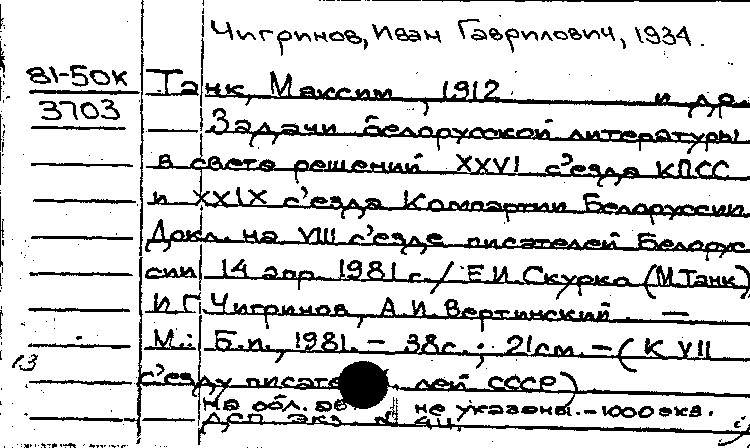 Чигринов, Иван Гаврилович, 1934.
81-50к Танк, Максим, 1912 и др.
3703
Задачи белорусской литературы
в свете решений XXVI с'езда КПСС
и XXIX с'езда Компартии Белоруссии
Докл. на VIII с'езде писателей Белорус
сии 14 апр. 1981 г. / Е.И. Скурко (М.Танк)
И.Г. Чигринов, А.И. Вертинский. —
М.: Б.и., 1981. - 38с.; 21см. - (К VII
13
с'езду писате лей СССР)
на обл. ав не указаны. - 1000 экз.
ДСП экз. №